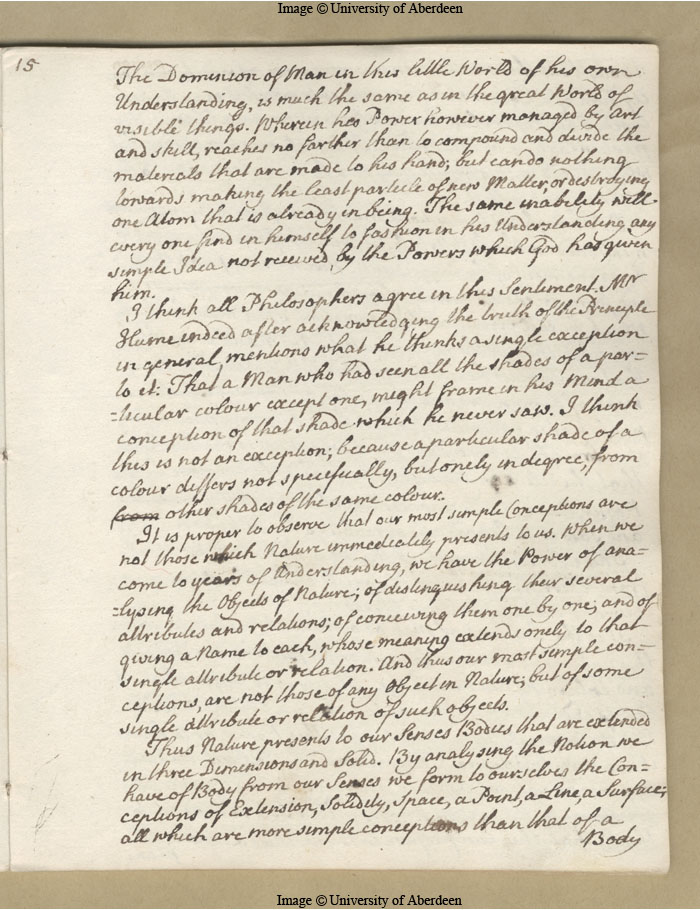 Image © University of Aberdeen
15
The Dominion of Man in this little World of his own
Understanding, is much the same as in the great World of
visible things. Wherein his Power however managed by Art
and skill, reaches no farther than to compound and divide the
materials that are made to his hand; but can do nothing
towards making the least particle of new Matter, or destroying
one Atom that is already in being. The same inability will
every one find in himself to fashion in his Understanding any
simple Idea not received by the Powers which God has given
him.
I think all Philosophers agree in this Sentiment. Mr
Hume indeed after acknowledging the truth of the Principle
in general, mentions what he thinks a single exception
to it: That a Man who had seen all the shades of a par=
=ticular colour except one, might frame in his Mind a
conception of that shade which he never saw. I think
this is not an exception; because a particular shade of a
colour differs not specifically, but onely in degree, from
from other shades of the same colour.
It is proper to observe that our most simple Conceptions are
not those which Nature immediately presents to us. When we
come to years of Understanding, we have the Power of ana=
=lysing the Objects of Nature; of distinguishing their several
attributes and relations; of conceiving them one by one; and of
giving a Name to each, whose meaning extends onely to that
single attribute or relation. And thus our most simple con=
ceptions, are not those of any Object in Nature; but of some
single attribute or relation of such objects.
Thus Nature presents to our Senses Bodies that are extended
in three Dimensions and Solid. By analysing the Notion we
have of Body from our Senses we form to ourselves the Con=
ceptions of Extension, Solidity, Space, a Point, a Line, a Surface;
all which are more simple conceptions than that of a
Body
Image © University of Aberdeen